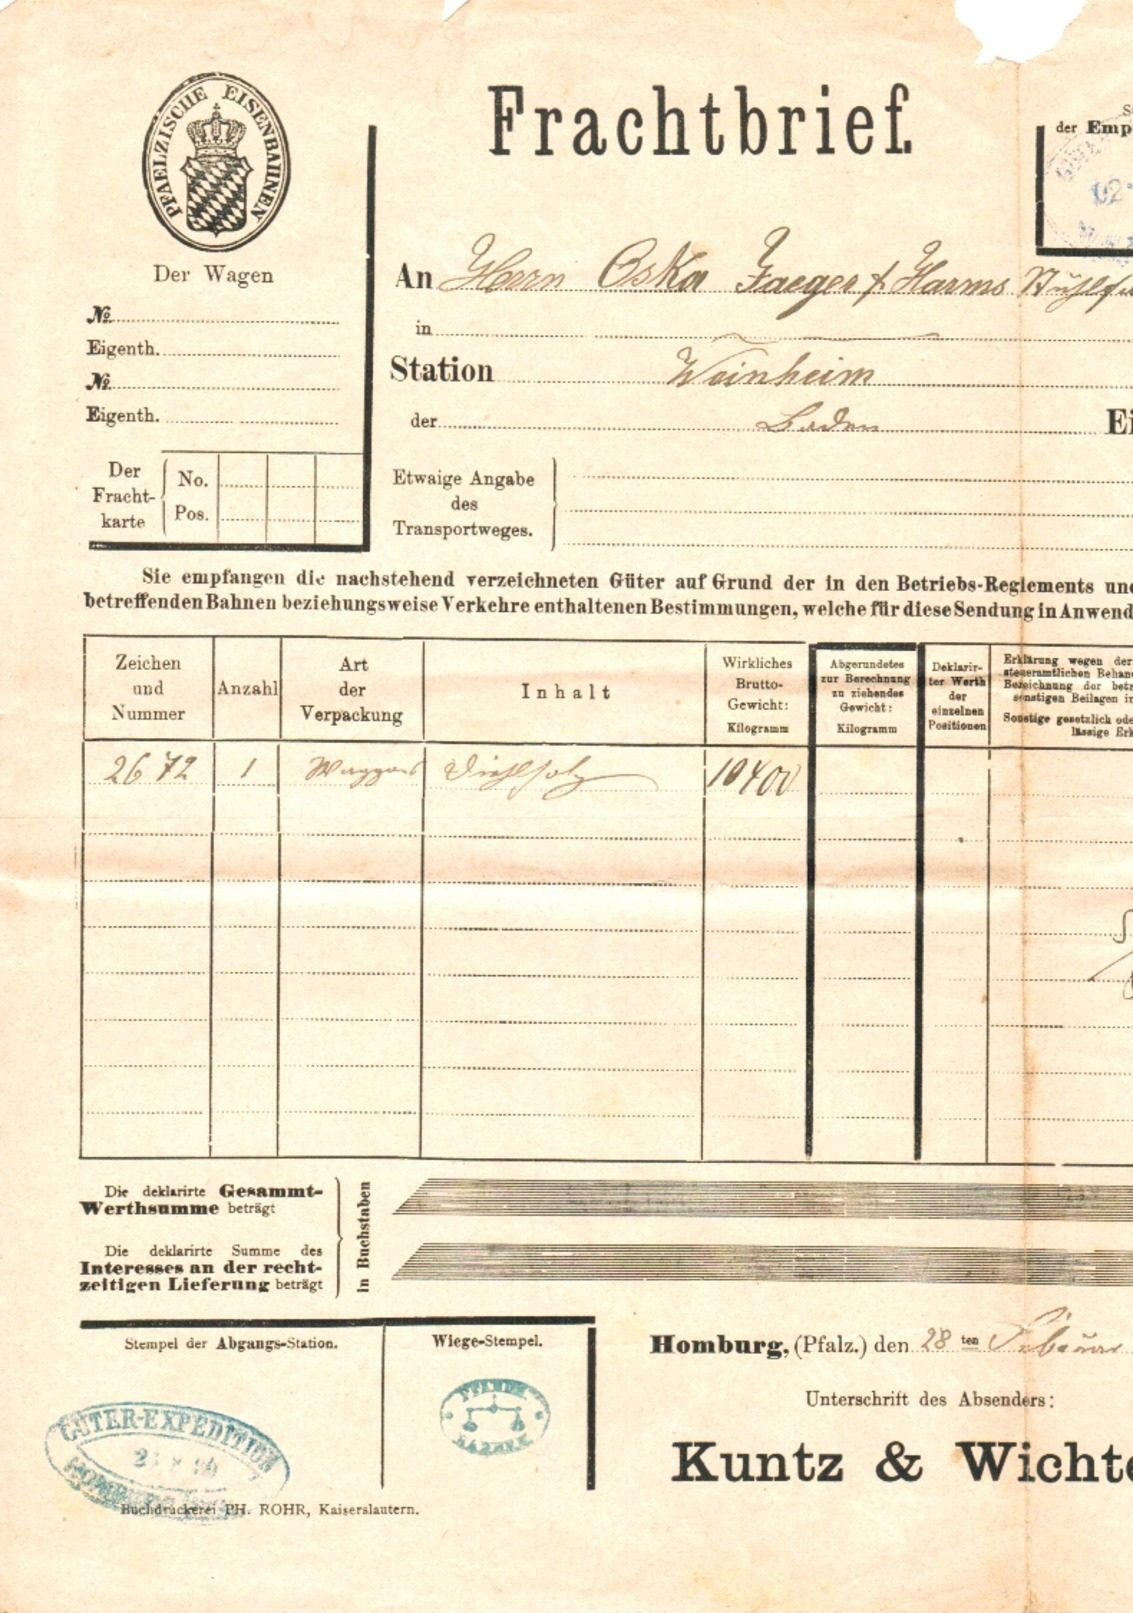 PFAELZISCHE EISENBAHNEN
Frachtbrief.
der Emp
02
Der Wagen
An Herrn Oska Jaeger & Harms
№
in
Eigenth.
Station Weinheim
№
Eigenth.
der Baden Ei
Der Fracht-karte
No.
Pos.
Etwaige Angabe
des
Transportweges.
Sie empfangen die nachstehend verzeichneten Güter auf Grund der in den Betriebs-Reglements und
betreffenden Bahnen beziehungsweise Verkehre enthaltenen Bestimmungen, welche für diese Sendung in Anwend
Zeichen
und
Nummer
Anzahl
Art
der
Verpackung
Inhalt
Wirkliches
Brutto-
Gewicht:
Kilogramm
Abgerundetes
zur Berechnung
zu ziehendes
Gewicht:
Kilogramm
Deklarir-
ter Werth
der
einzelnen
Positionen
Erklärung wegen der
steueramtlichen Behan
Bezeichnung der betr
sonstigen Beilagen in
Sonstige gesetzlich ode
lässige Erk
2672 1 10400
Die deklarirte Gesammt-
Werthsumme beträgt
Die deklarirte Summe des
Interesses an der recht-
zeitigen Lieferung beträgt
in Buchstaben
Stempel der Abgangs-Station.
Wiege-Stempel.
Homburg, (Pfalz.) den 28 ten Februar
Unterschrift des Absenders:
GÜTER-EXPEDITION
Kuntz & Wichte
Buchdruckerei PH. ROHR, Kaiserslautern.